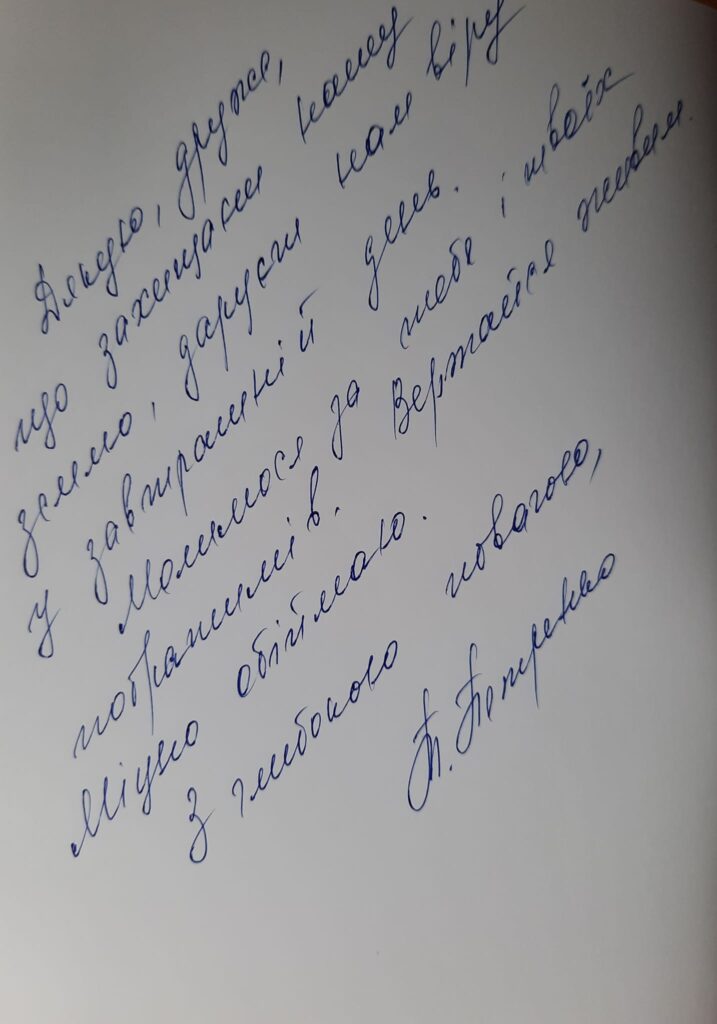 Дякую, друже,
що захищаєш нашу
землю, даруєш нам віру
у завтрашній день.
Молимося за тебе і твоїх
побратимів. Вертайся живим.
Міцно обіймаю.
З глибокою повагою,
П. Петренко